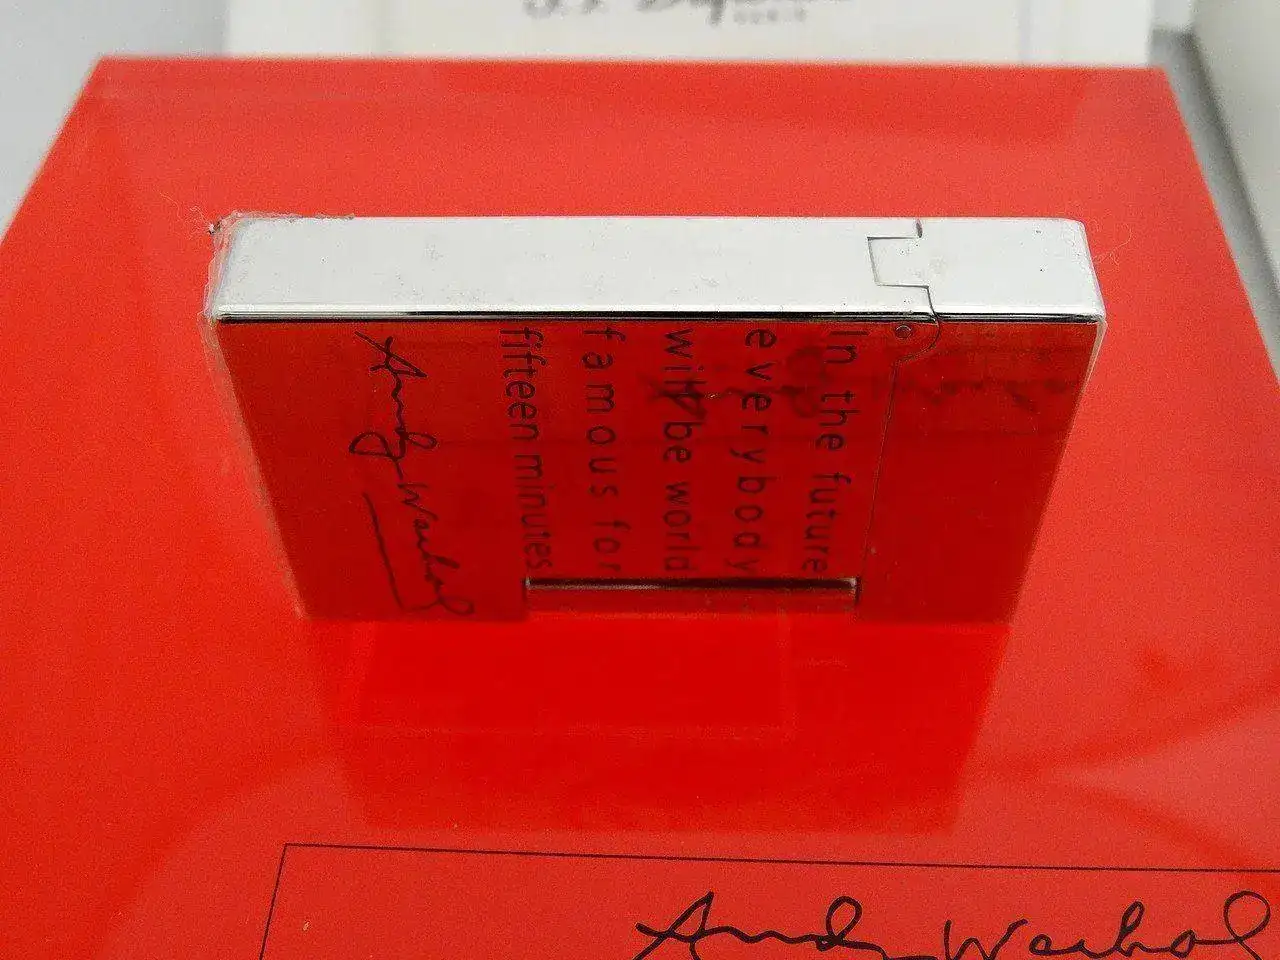 PARIS
In the future
everybody
will be world
famous for
fifteen minutes
Andy Warhol
Andy Warhol